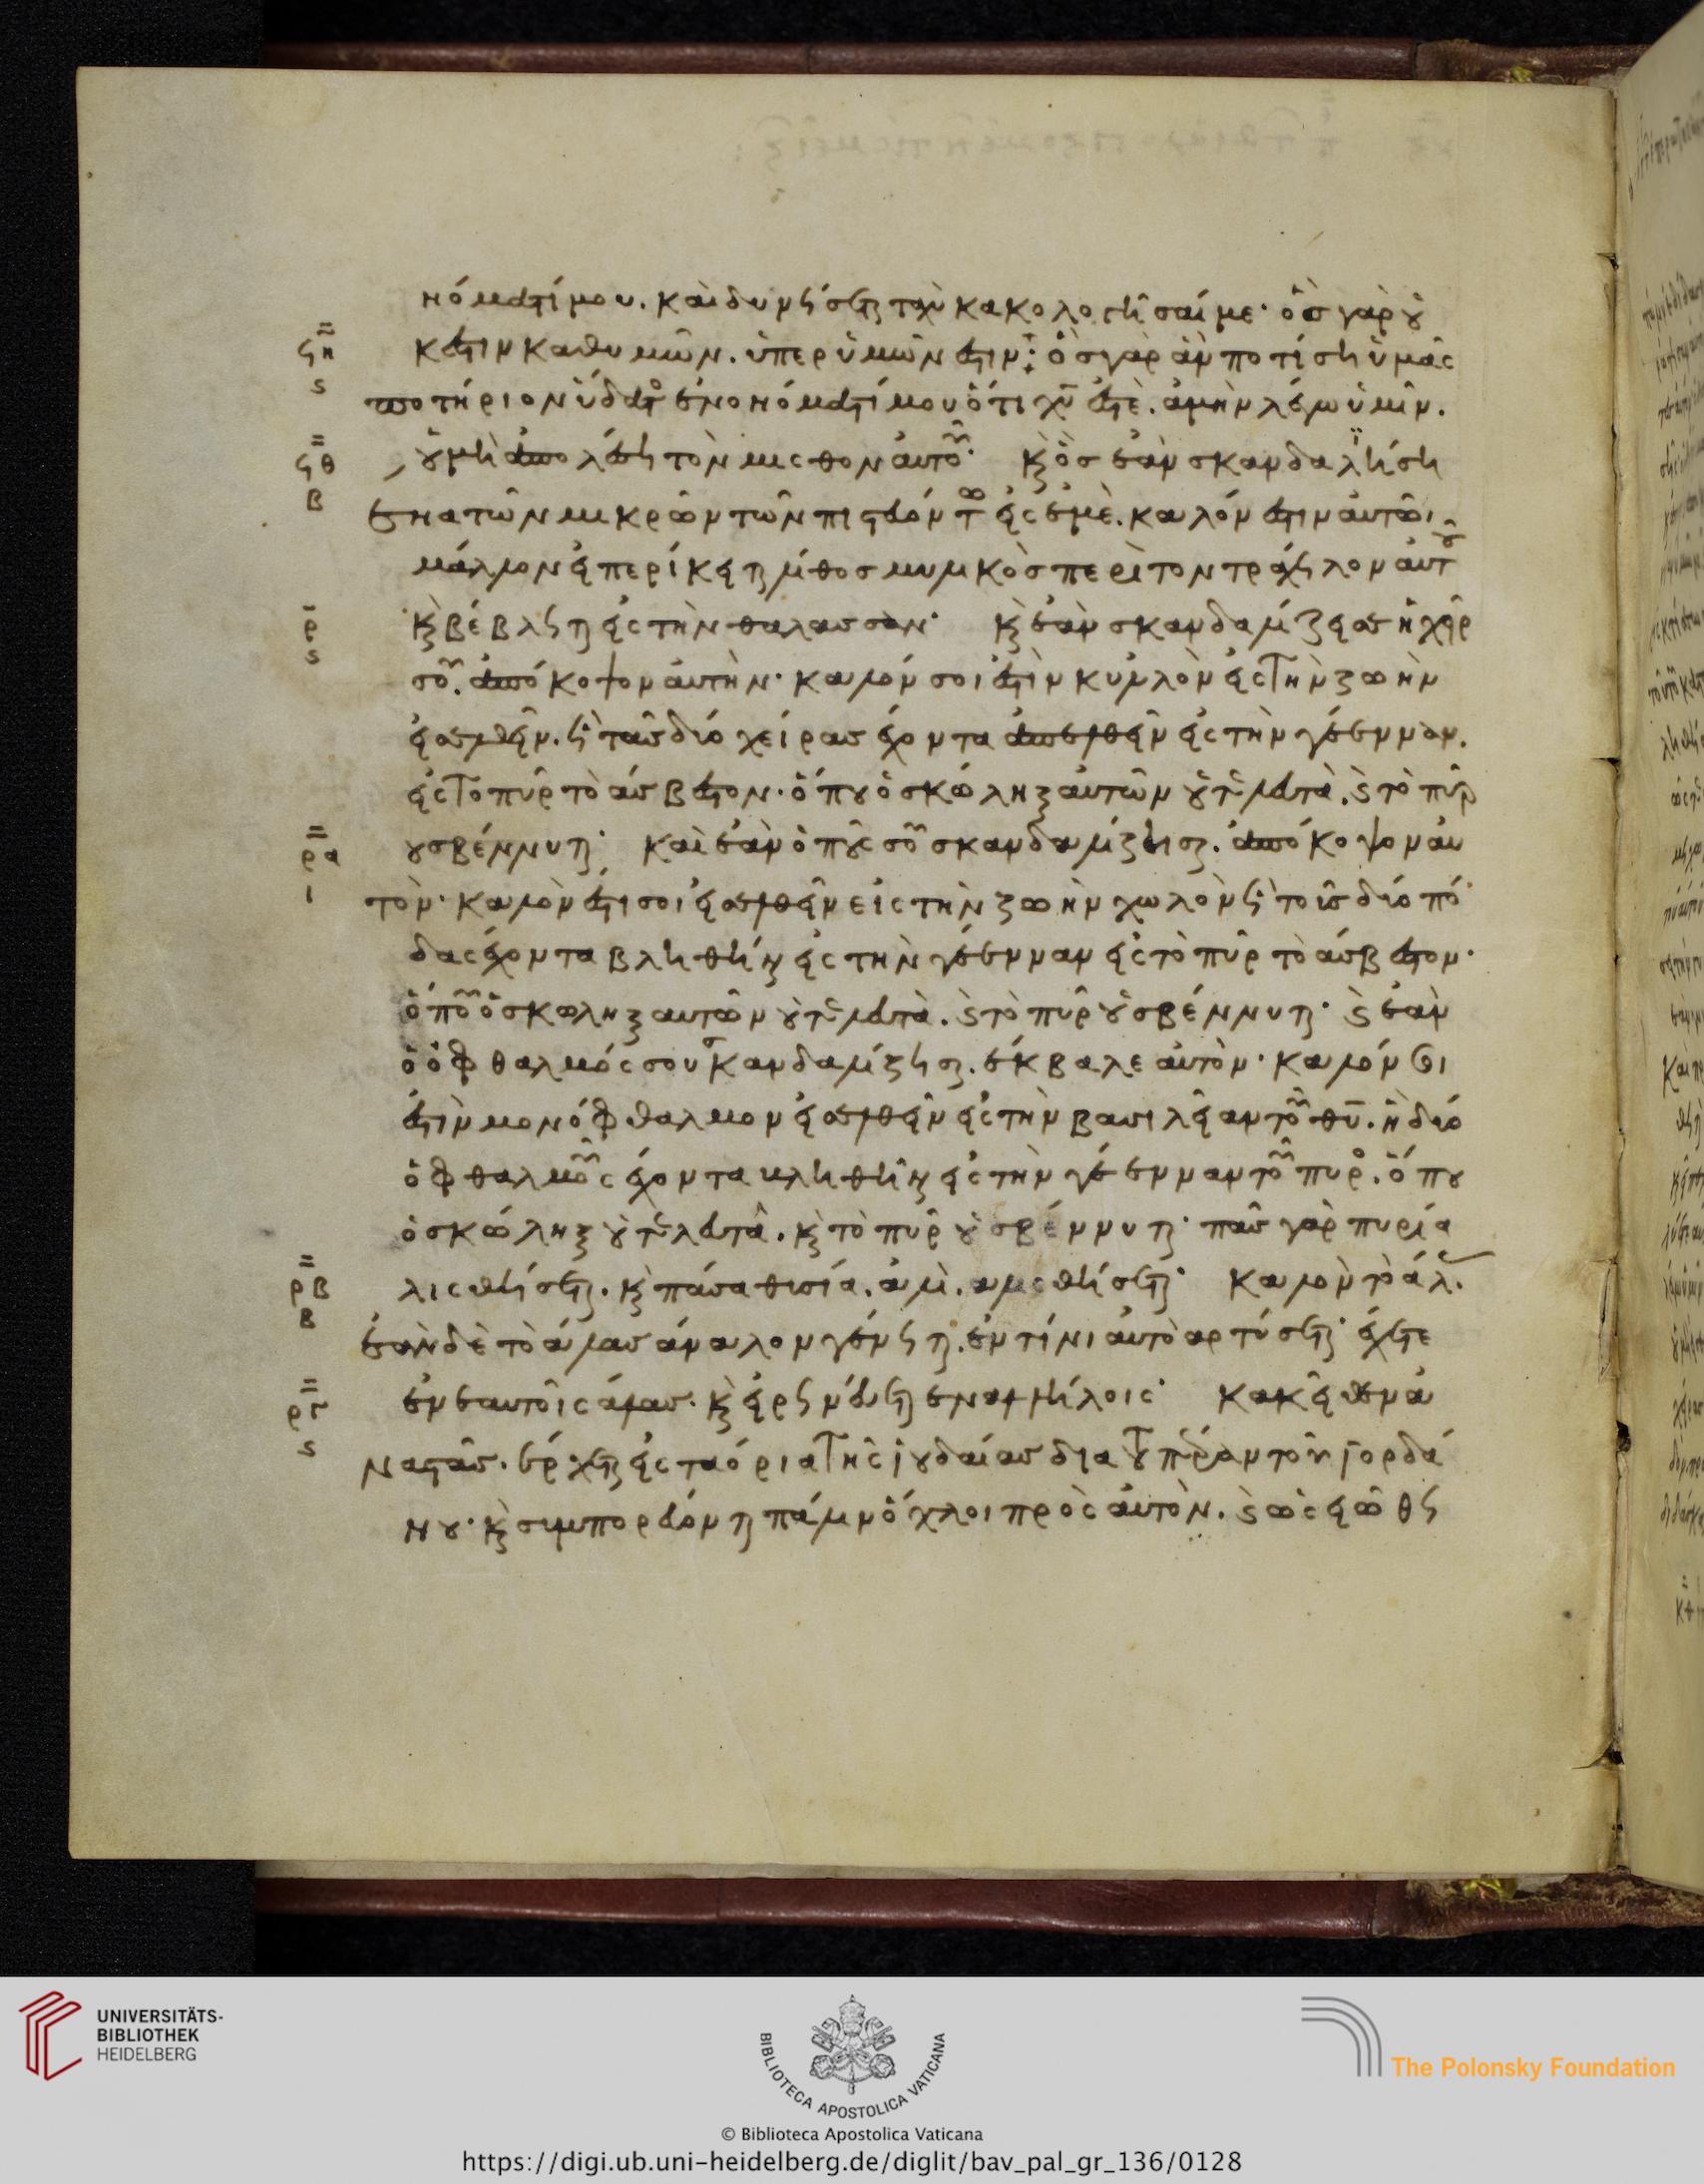 νόματί μου. καὶ δυνήσεται ταχὺ κακολογῆσαί με· ὃς γὰρ οὐ
ϟη κἔστιν καθυμῶν. ὑπὲρ ὑμῶν ἐστιν: ὃς γὰρ ἂν ποτίση ὑμᾶς
ϛ
ποτήριον ὕδατος ἐν ὀνόματί μου ὅτι χυ ἐστὲ. ἀμὴν λέγω ὑμῖν.
ϟθ οὐ μὴ ἀπολέση τὸν μισθὸν αὐτοῦ· κ ὃς ἐὰν σκανδαλίση
β
ἕνα τῶν μικρῶν τῶν πιστευόντων εἰς ἐμὲ. καλόν ἐστιν αὐτῶι
μᾶλλον εἰ περίκειται λίθος μυλικὸς περὶ τὸν τράχηλον αὐτοῦ
ρ κ βέβληται εἰς τὴν θάλασσαν· κ ἐὰν σκανδαλίζει σε ἡ χείρ
ϛ
σου. ἀπόκοψον αὐτὴν· καλόν σοι ἐστὶν κυλλὸν εἰς τὴν ζωὴν
εἰσελθεῖν. ἢ τὰς δύο χείρας ἔχοντα ἀπελθεῖν εἰς τὴν γέενναν.
εἰς τὸ πῦρ τὸ ἄσβεστον· ὅπου ὁ σκώληξ αὐτῶν οὐ τελευτὰ. κ τὸ πῦρ
ρα οὐ σβέννυται· καὶ ἐὰν ὁ πούς σου σκανδαλίζη σε. ἀπόκοψον αὐ
ι
τὸν· καλὸν ἐστι σοι εἰσελθεῖν εἰς τὴν ζωὴν χωλὸν ἢ τοὺς δύο πό
δας ἔχοντα βληθῆναι εἰς τὴν γέενναν εἰς τὸ πῦρ τὸ ἄσβεστον·
ὅπου ὁ σκώληξ αὐτῶν οὐ τελευτὰ. κ τὸ πῦρ οὐ σβέννυται· κ ἐὰν
ὁ ὀφθαλμός σου σκανδαλίζη σε. ἔκβαλε αὐτὸν· καλόν σοι
ἐστὶν μονόφθαλμον εἰσελθεῖν εἰς τὴν βασιλείαν τοῦ θυ. ἢ δύο
ὀφθαλμοὺς ἔχοντα κληθῆναι εἰς τὴν γέενναν τοῦ πυρός. ὅπου
ὁ σκώληξ οὐ τελευτᾶ. κ τὸ πῦρ οὐ σβέννυται· πᾶς γὰρ πυρὶ ἁ
ρβ λισθήσεται. κ πᾶσα θυσία. ἁλὶ. ἁλισθήσεται· καλὸν τὸ ἅλας.
β
ἐὰν δὲ τὸ ἅλας ἄναλον γένηται. ἐν τίνι αὐτὸ ἀρτύσεται· ἔχετε
ργ ἐν ἑαυτοῖς ἅλας· κ εἰρηνεύεται ἐν ἀλλήλοις· κακεῖθεν ἀ
ϛ
ναστὰς. ἔρχεται εἰς τὰ ὅρια τῆς ἰουδαίας διὰ τοῦ πέραν τοῦ ἰορδά
νου· κ συμπορεύονται πάλιν ὄχλοι πρὸς αὐτὸν. κ ὡς εἰώθη
UNIVERSITÄTS-
BIBLIOTHEK
HEIDELBERG
BIBLIOTECA APOSTOLICA VATICANA
The Polonsky Foundation
© Biblioteca Apostolica Vaticana
https://digi.ub.uni-heidelberg.de/diglit/bav_pal_gr_136/0128